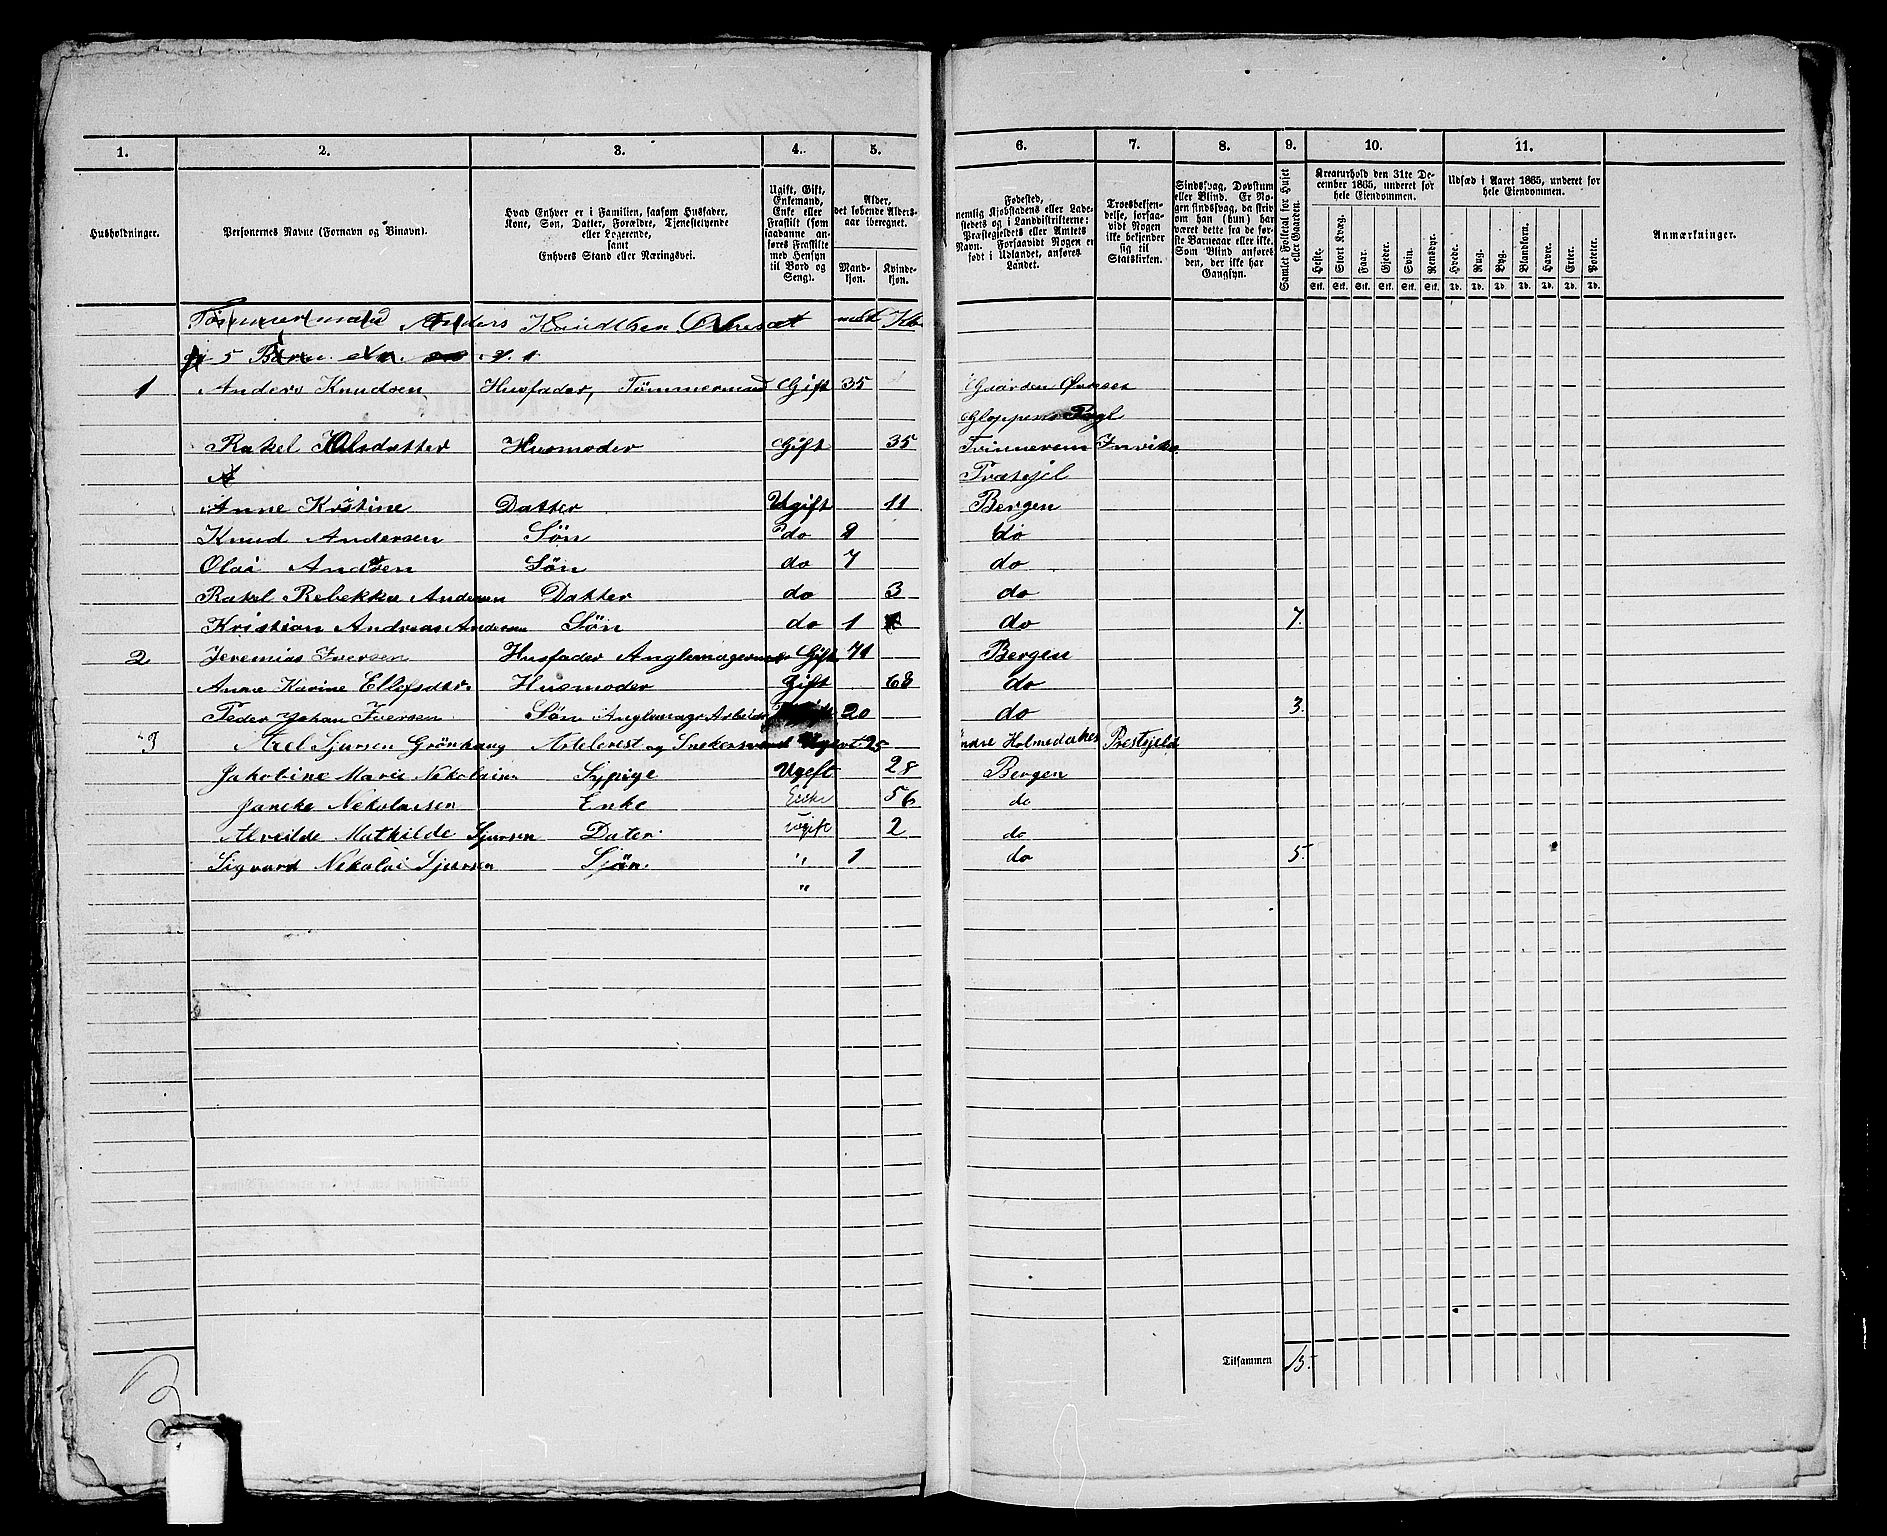 1. 2. 3. 4. 5. 6. 7. 8. 9. 10. 11.
Husholdninger.
Personernes Navne (Fornavn og Tilnavn).
Hvad Enhver er i Familien, saasom Husfader,
Kone, Søn, Datter, Forældre, Tjenestetyende
eller Logerende,
samt
Enhvers Stand eller Næringsvei.
Ugift, Gift,
Enkemand,
Enke eller
Fraskilt (som
saadanne an-
føres Fraskilte
med Hensyn
til Bord og
Seng).
Alder,
det løbende Alders-
aar iberegnet.
Mand-
kjøn.
Kvinde-
kjøn.
Fødested,
nemlig Kjøbstadens eller Lade-
stedets og i Landdistrikterne:
Præstegjeldets eller Amtets
Navn. Forsaavidt Nogen er
født i Udlandet, anføres
Landet.
Troesbekjen-
delse, forsaa-
vidt Nogen
ikke bekjender
sig til
Statskirken.
Sindssvag, Døvstum
eller Blind. Er No-
gen sindssvag, da skriv
om han (hun) har
været dette fra de før-
ste Barneaar eller ikke.
Som Blind anføres
den, der ikke har
Gangsyn.
Samlet Folketal for Huset
eller Gaarden.
Kreaturhold den 31te De-
cember 1865, underet for
hele Eiendommen.
Heste. Stort Kvæg. Faar. Gjeder. Svin. Rensdyr.
Stk. Stk. Stk. Stk. Stk. Stk.
Udsæd i Aaret 1865, underet for
hele Eiendommen.
Hvede. Rug. Byg. Blandkorn. Havre. Erter. Poteter.
Td. Td. Td. Td. Td. Td. Td.
Anmærkninger.
Tømmermand Anders Knudtsen med
5 Børn
1 Anders Knudsen Husfader, Tømmermand Gift 35 Gaarden
Gloppens
Rakel Husmoder Gift 35 Indvik
A
Anne Kristine Datter Ugift 11 Bergen
Knud Andersen Søn do 9 do
Olai Andersen Søn do 7 do
Rakel Rebekka Andersen Datter do 3 do
Kristian Andreas Andersen Søn do 1 do 7.
2 Jeremias Iversen Husfader Gift 71 Bergen
Anne Karine Ellefsdtr. Husmoder Gift 68 do
Peder Johan Iversen Søn 20 do 3.
3 Axel Sjursen Grönhaug og Ugivt 25 Holmedahls Prestejeld
Jakobine Marie Nekolaisn Sypige Ugeft 28 Bergen
Jancke Nekolaisen Enke Enke 56 do
Alveilde Mathilde Sjursen Dater ugift 2 do
Sigvard Nekolai Sjursen Sjön " 1 do 5.
"
Tilsammen 15.